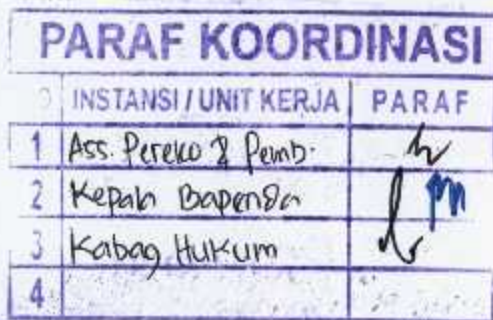 PARAF KOORDINASI
INSTANSI / UNIT KERJA PARAF
1 Ass. Pereko & Pemb.
2 Kepala Bapenda
3 Kabag Hukum
4